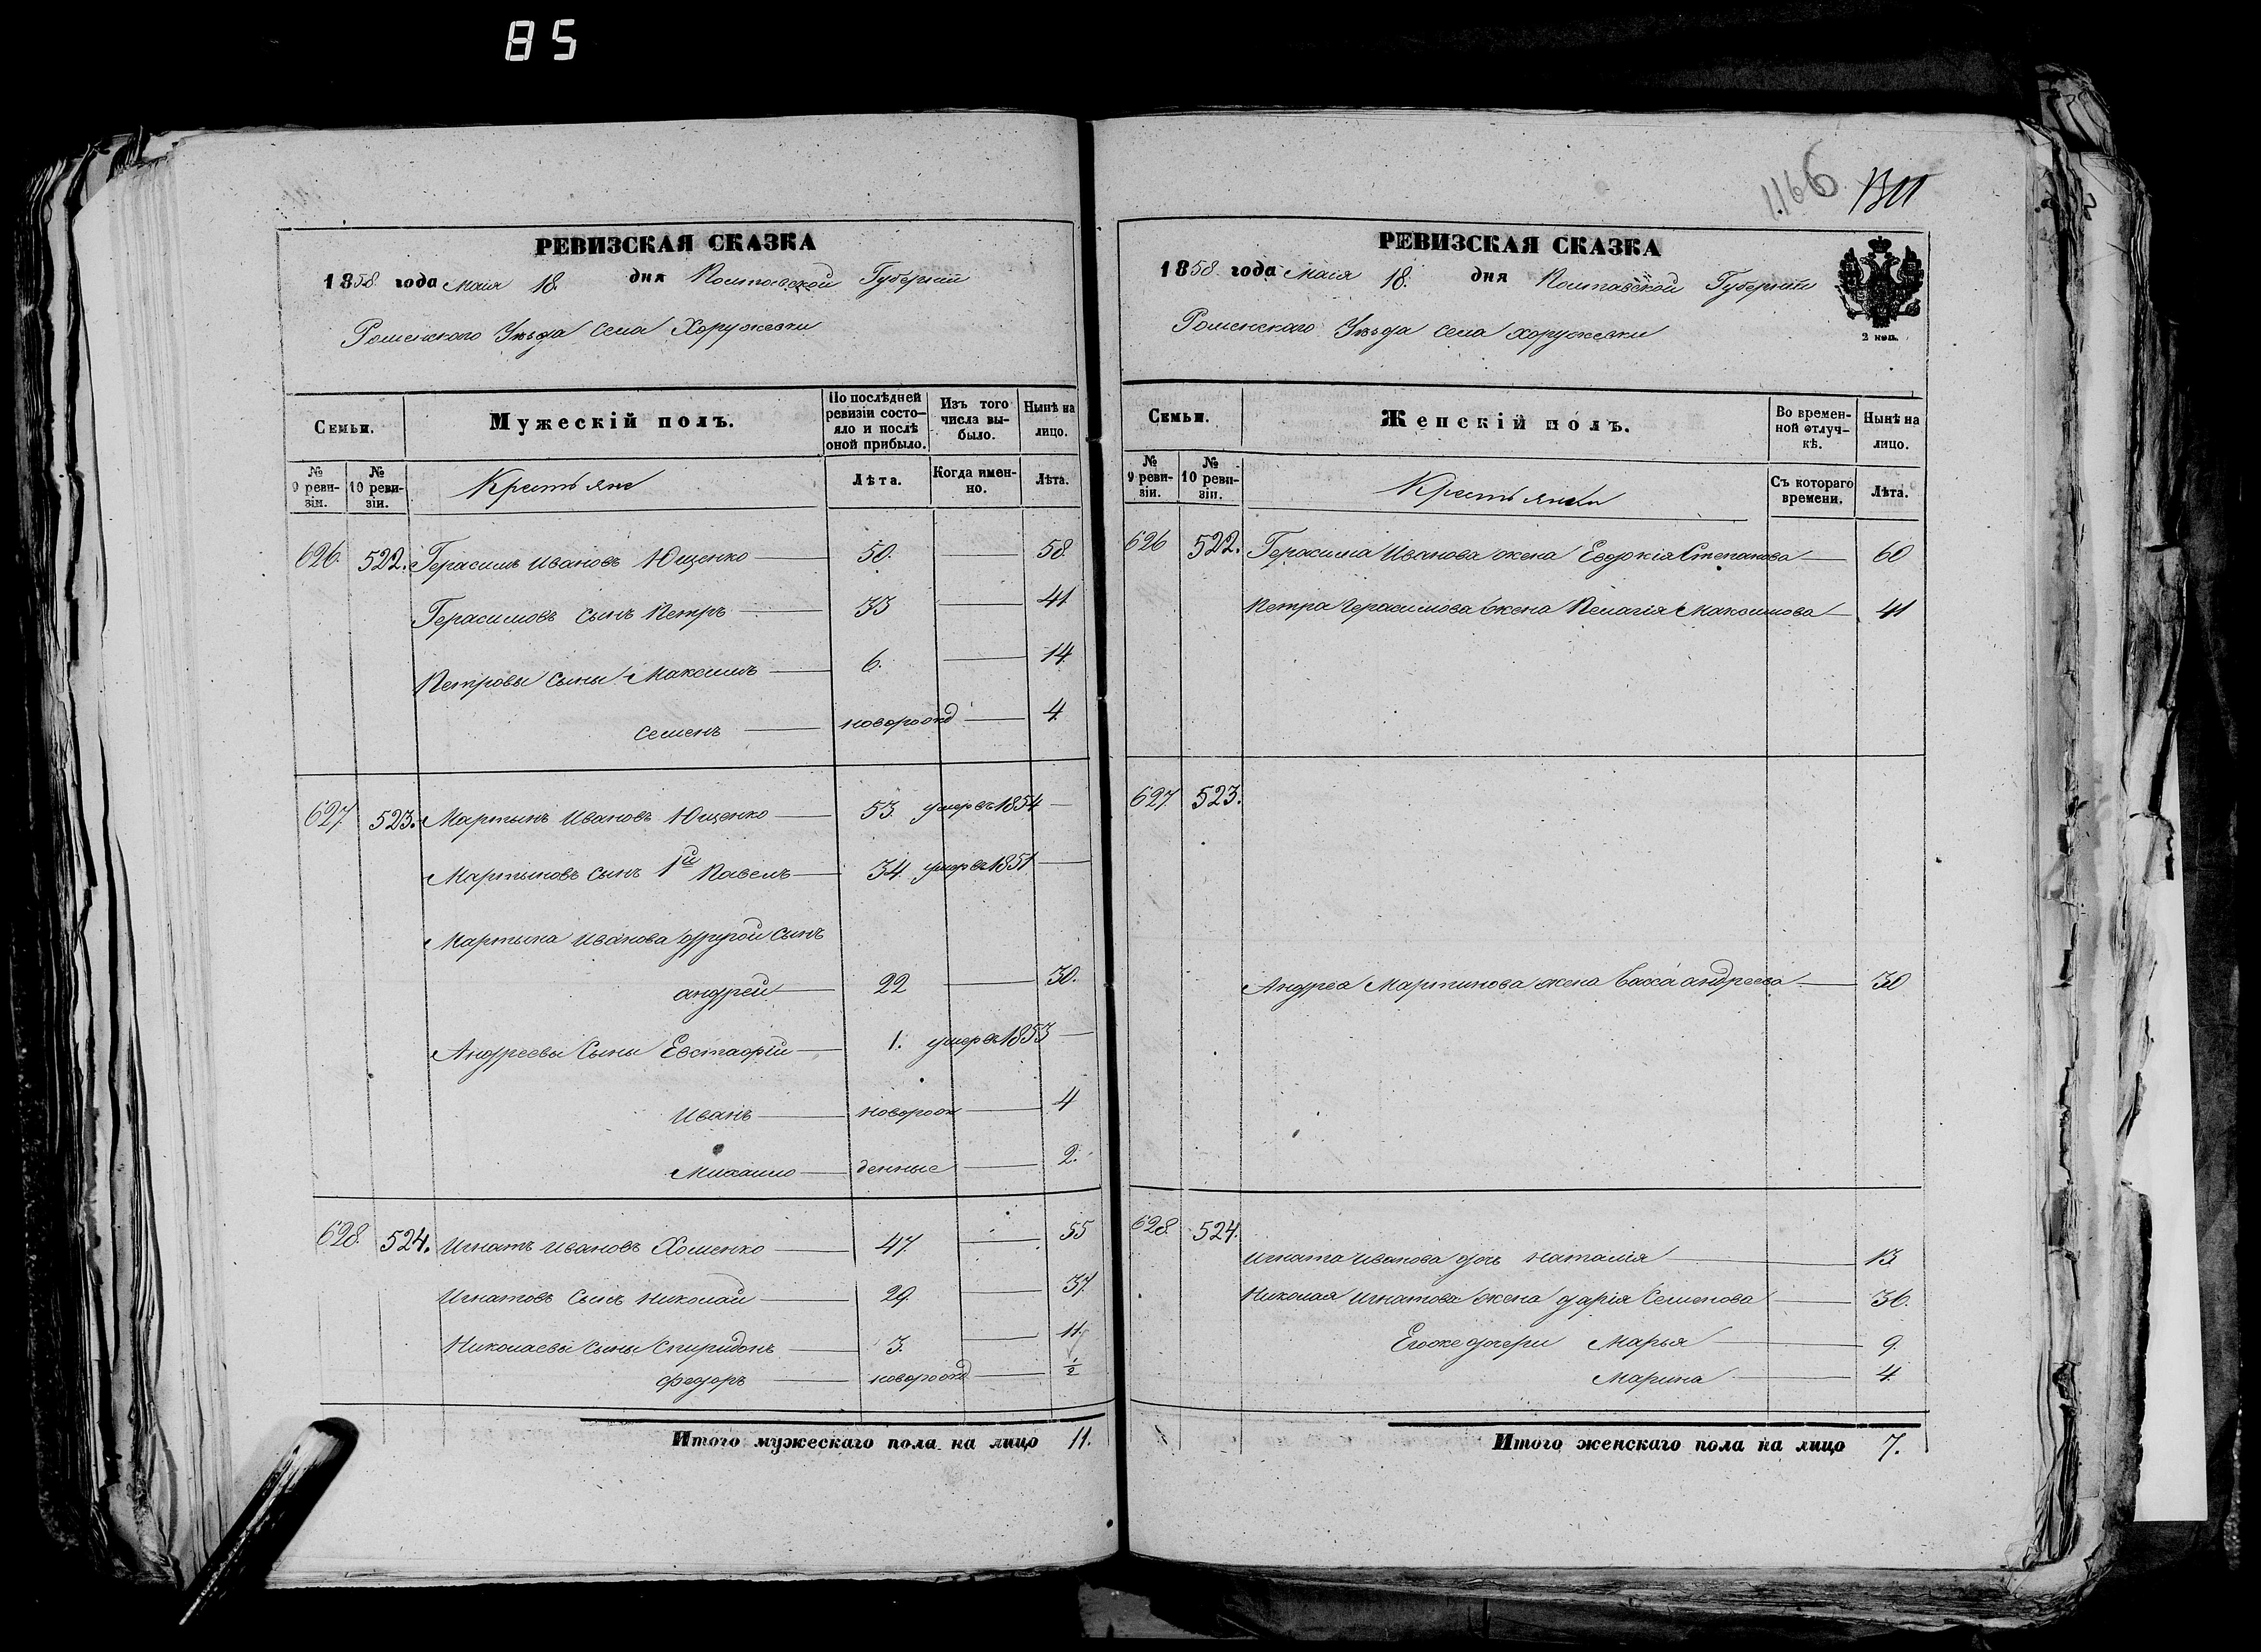 85
1166
РЕВИЗСКАЯ СКАЗКА
1858 года Маія 18. дня Полтавской Губерніи
Роменскаго Уѣзда Села Хоружевки
Семьи.
Мужескій полъ.
По послѣдней ревизіи состояло и послѣ оной прибыло.
Изъ того числа выбыло.
Нынѣ на лицо.
№ 9 ревизіи.
№ 10 ревизіи.
Крестьяне
Лѣта.
Когда именно.
Лѣта.
626. 522. Герасимъ Ивановъ Ющенко 50. 58.
Герасимовъ сынъ Петръ 33 41
Петровы сыны Максимъ 6. 14.
Семенъ новорожд 4.
627. 523. Мартынъ Ивановъ Ющенко 53. умеръ 1854
Мартыновъ сынъ 1й Павелъ 34. умеръ 1851
Мартына Иванова другой сынъ
Андрей 22 30.
Андреевы сыны Евстафій 1. умеръ 1853
Иванъ новорож 4
Михаило денные 2.
628. 524. Игнатъ Ивановъ Хоменко 47. 55
Игнатовъ сынъ Николай 29. 37.
Николаевы сыны Спиридонъ 3. 11.
Федоръ новорожд ½
Итого мужескаго пола на лицо 11.
РЕВИЗСКАЯ СКАЗКА
1858 года Маія 18. дня Полтавской Губерніи
Роменскаго Уѣзда Села Хоружевки
2 коп.
Семьи.
Женскій полъ.
Во временной отлучкѣ.
Нынѣ на лицо.
№ 9 ревизіи.
№ 10 ревизіи.
Крестьянки
Съ котораго времени.
Лѣта.
626 522. Герасима Иванова жена Евдокія Степанова 60
Петра Герасимова жена Пелагія Максимова 41
627 523.
Андрея Мартинова жена Андреева 30
628. 524.
Игната Иванова дочь Наталія 13
Николая Игнатова жена Дарія Семенова 36.
Егоже дочери Марья 9.
Марина 4.
Итого женскаго пола на лицо 7.